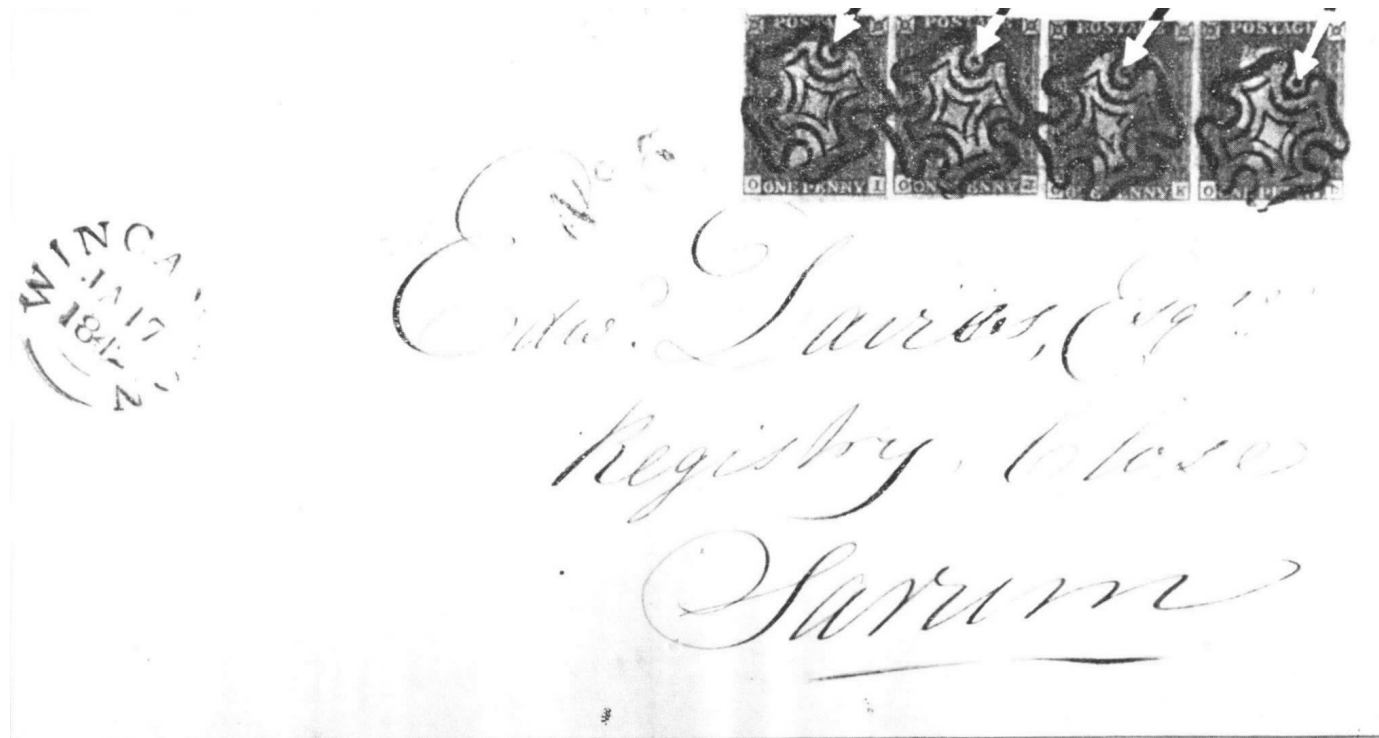 POSTAGE POSTAGE POSTAGE POSTAGE
O ONE PENNY I O ONE PENNY O ONE PENNY K O ONE PENNY
No
WINCA ON
JA 17
1842
Edw. Davies, Esqre
Registry. Close
Sarum